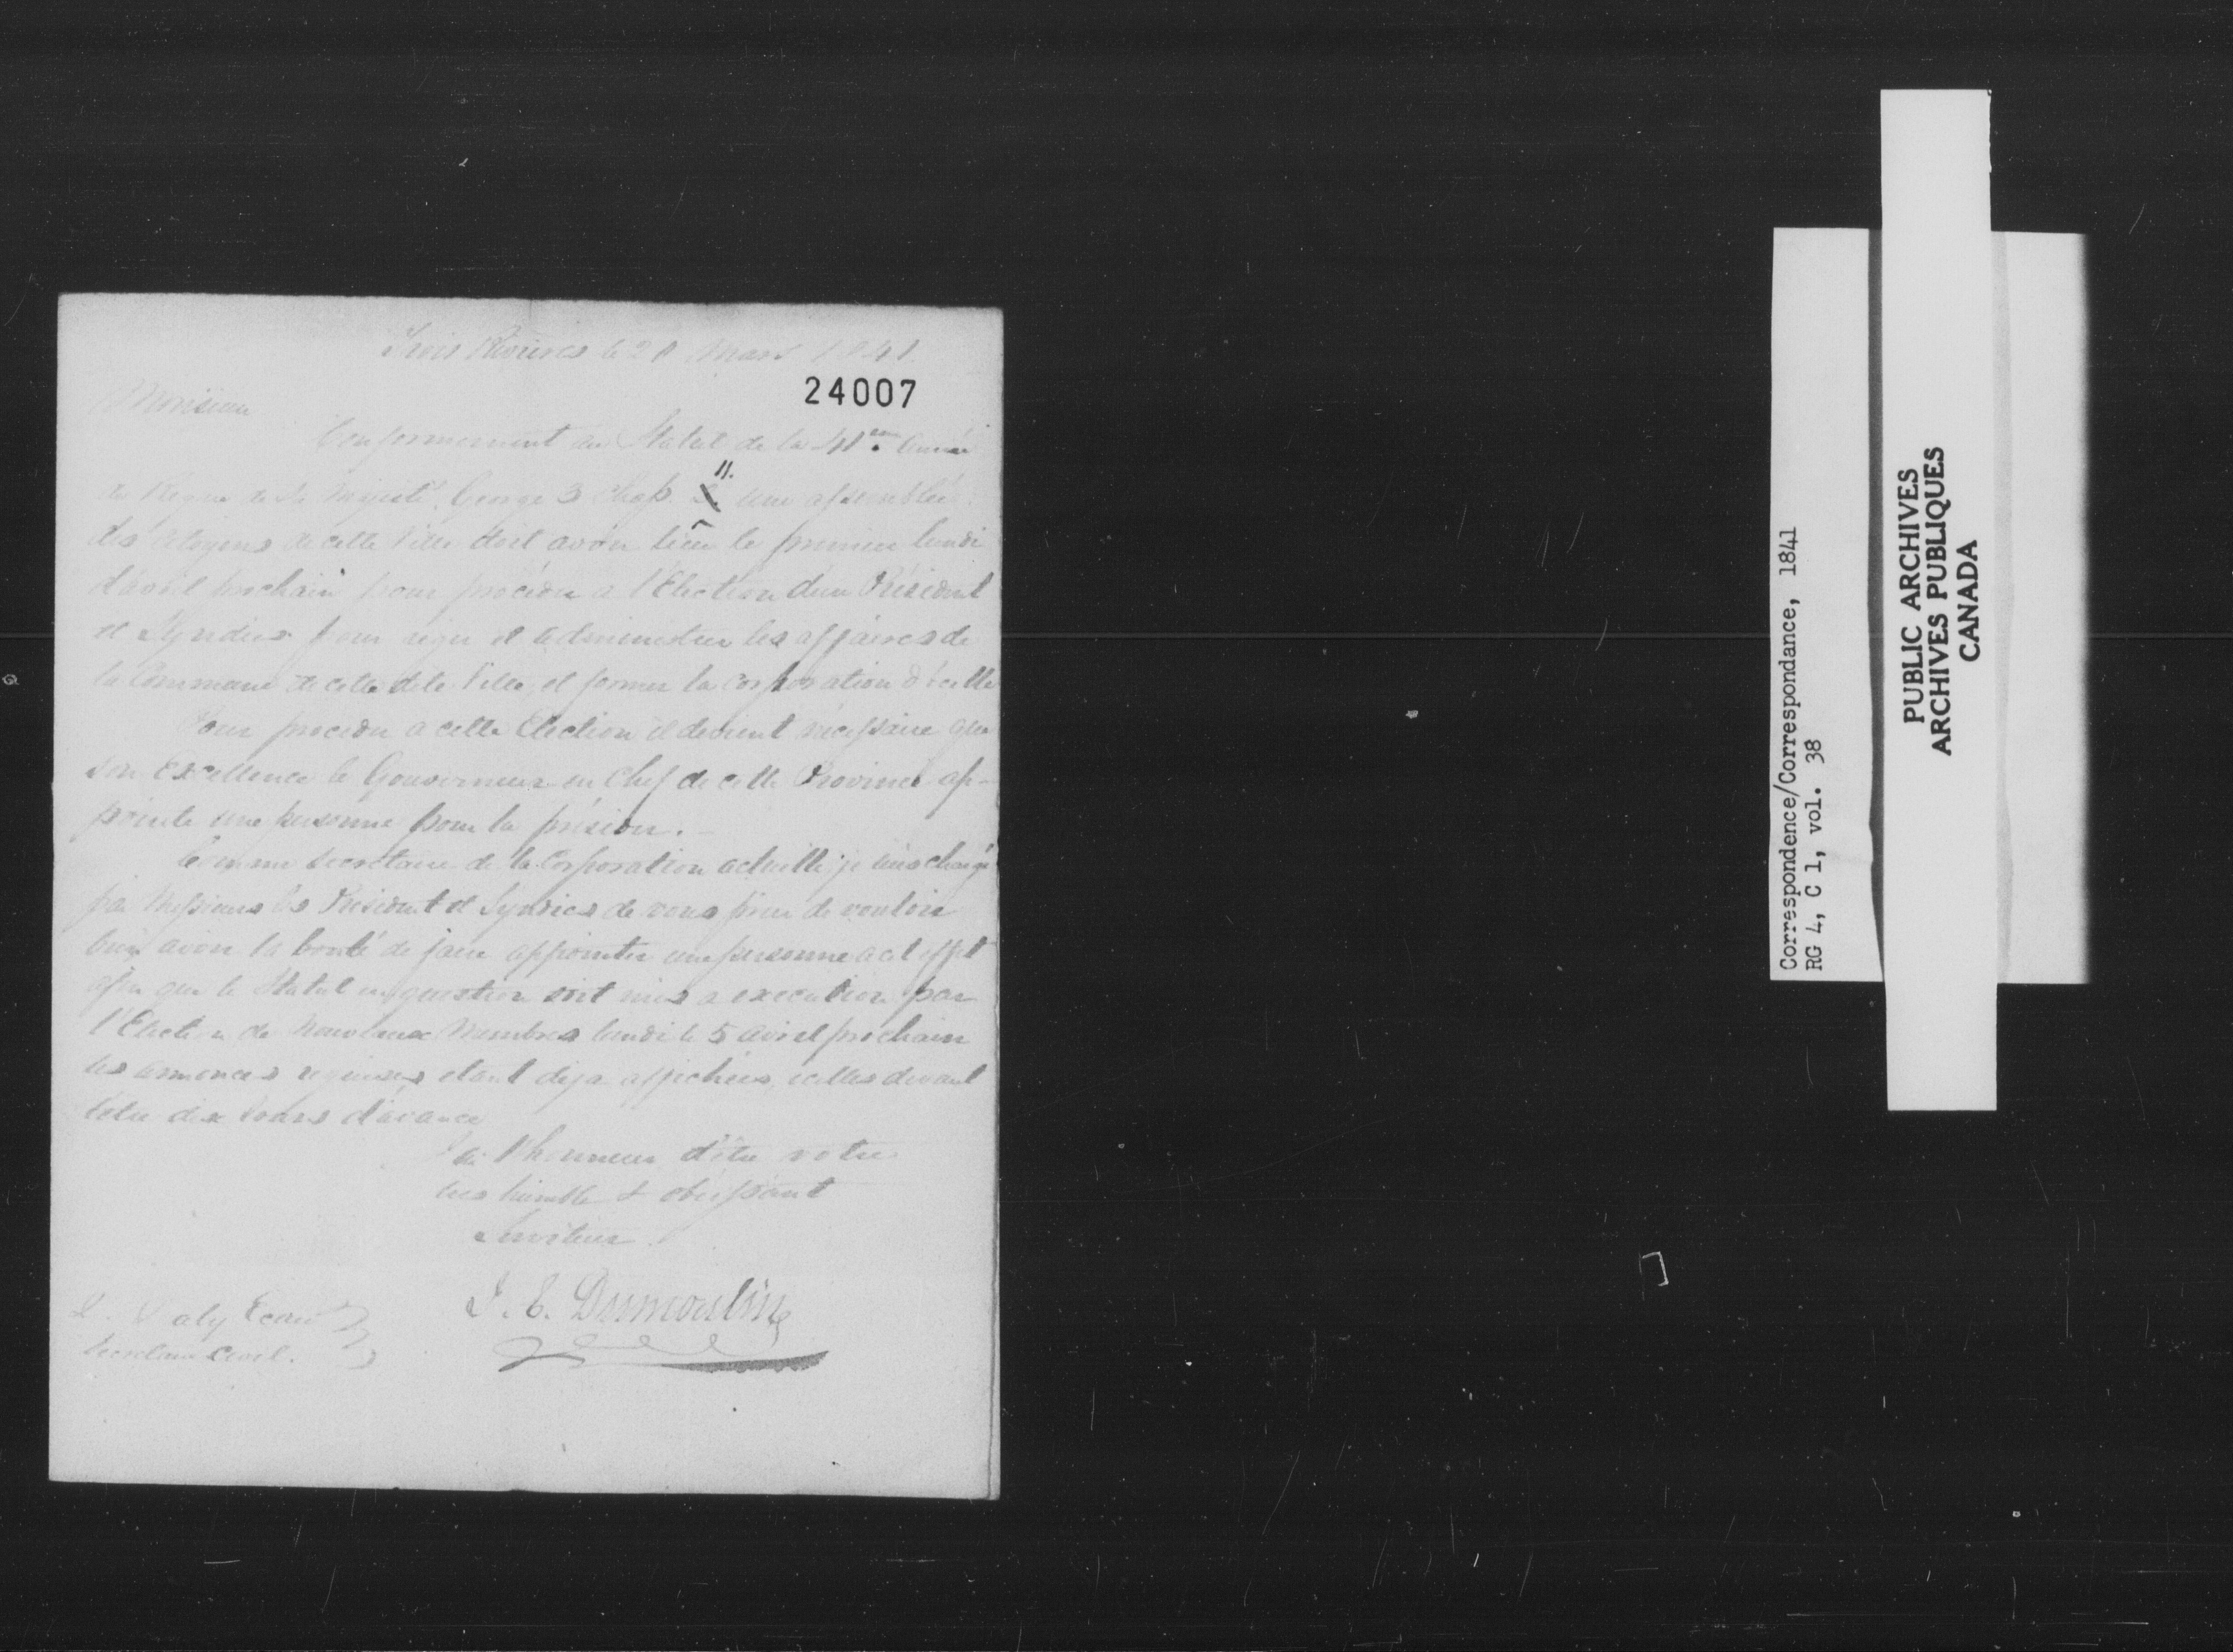 Trois Rivieres le 20 Mars 1841
24007
Monsieur
Conformement au Statut de la 41me. Année
du Regne de Sa Majesté George 3 Chap. 11. une assemblée
des Citoyens de cette Ville doit avoir lieu le premier lundi
d'avril prochain pour proceder a l'Election d'un Président
et Syndics pour régir et administrer les affaires de
la Commune de cette dite Ville, et former la corporation d'icelle
Pour proceder a cette Election il devient nécessaire que
son Excellence le Gouverneur en Chef de cette Province ap-
pointe une personne pour la présider.
Comme Secretaire de la Corporation actuelle je suis chargé
par Messieurs les Président et Syndics de vous prier de vouloir
bien avoir la bonté de faire appointer une personne a cet effet
afin que le Statut en question soit mis a execution par
l'Election de Nouveaux Membres lundi le 5 avril prochain
les annonces requises etant deja affichées, icelles devant
l'être dix Jours d'avance
J'ai l'honneur d'être votre
tres humble & obeissant
Serviteur
J. E. Dumoulin
D. Daly Ecuier
Secretaire Civil.
Correspondence/Correspondance, 1841
RG 4, C 1, vol. 38
PUBLIC ARCHIVES
ARCHIVES PUBLIQUES
CANADA